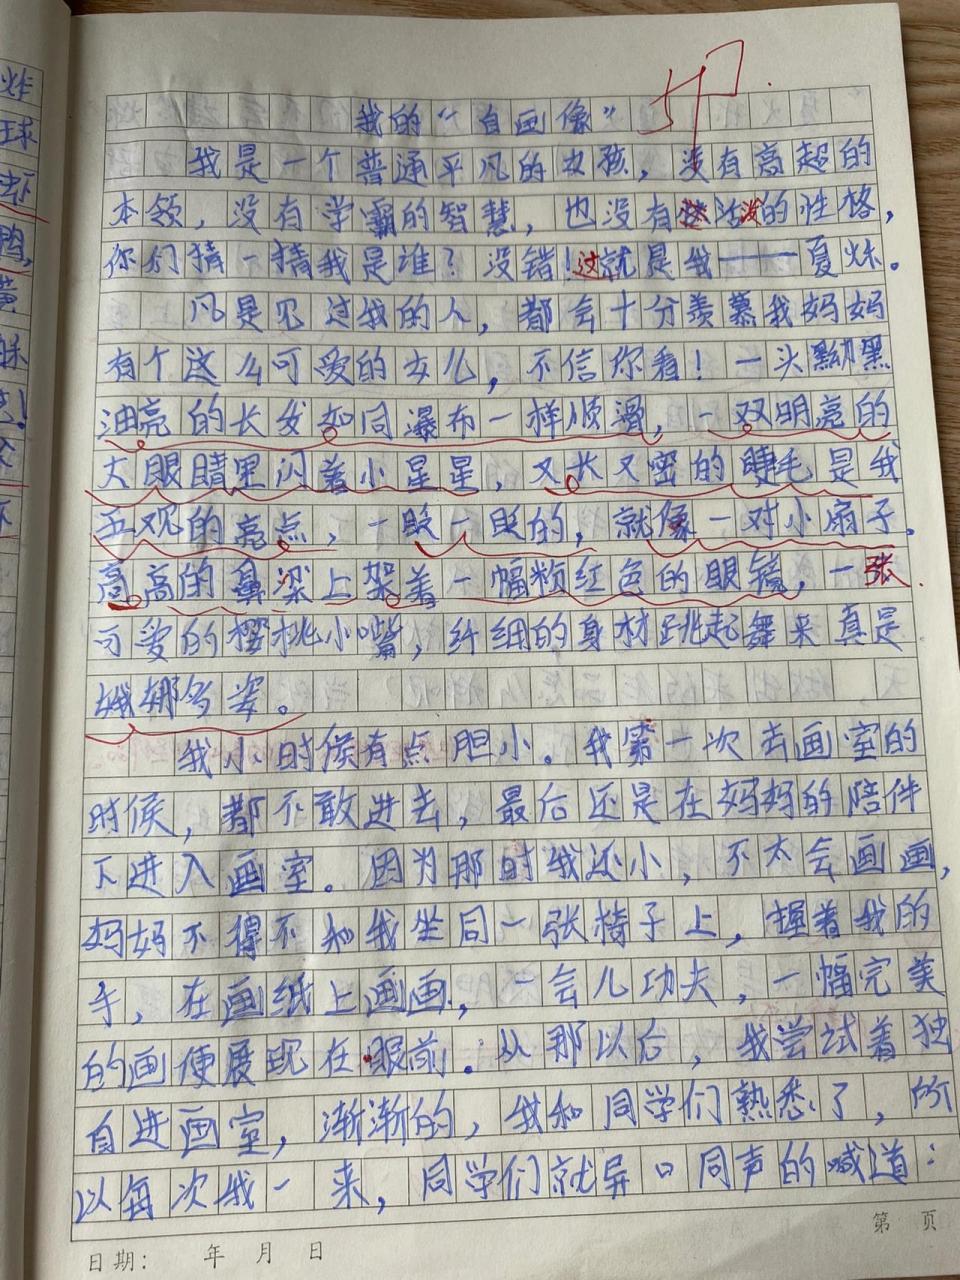 我的“自画像”
我是一个普通平凡的女孩，没有高超的
本领，没有学霸的智慧，也没有活泼的性格，
你们猜一猜我是谁？没错！这就是我——夏烁。
凡是见过我的人，都会十分羡慕我妈妈
有个这么可爱的女儿，不信你看！一头黝黑
油亮的长发如同瀑布一样顺滑，一双明亮的
大眼睛里闪着小星星，又长又密的睫毛是我
五观的亮点，一眨一眨的，就像一对小扇子。
高高的鼻梁上架着一幅粉红色的眼镜，一张
可爱的樱桃小嘴，纤细的身材跳起舞来真是
娥娜多姿。
我小时候有点胆小。我第一次去画室的
时候，都不敢进去，最后还是在妈妈的陪伴
下进入画室。因为那时我还小，不太会画画，
妈妈不得不和我坐同一张椅子上，握着我的
手，在画纸上画画，一会儿功夫，一幅完美
的画便展现在眼前。从那以后，我尝试着独
自进画室，渐渐的，我和同学们熟悉了，所
以每次我一来，同学们就异口同声的喊道：
日期： 年 月 日
第 页
炸
球
鸭，
黄